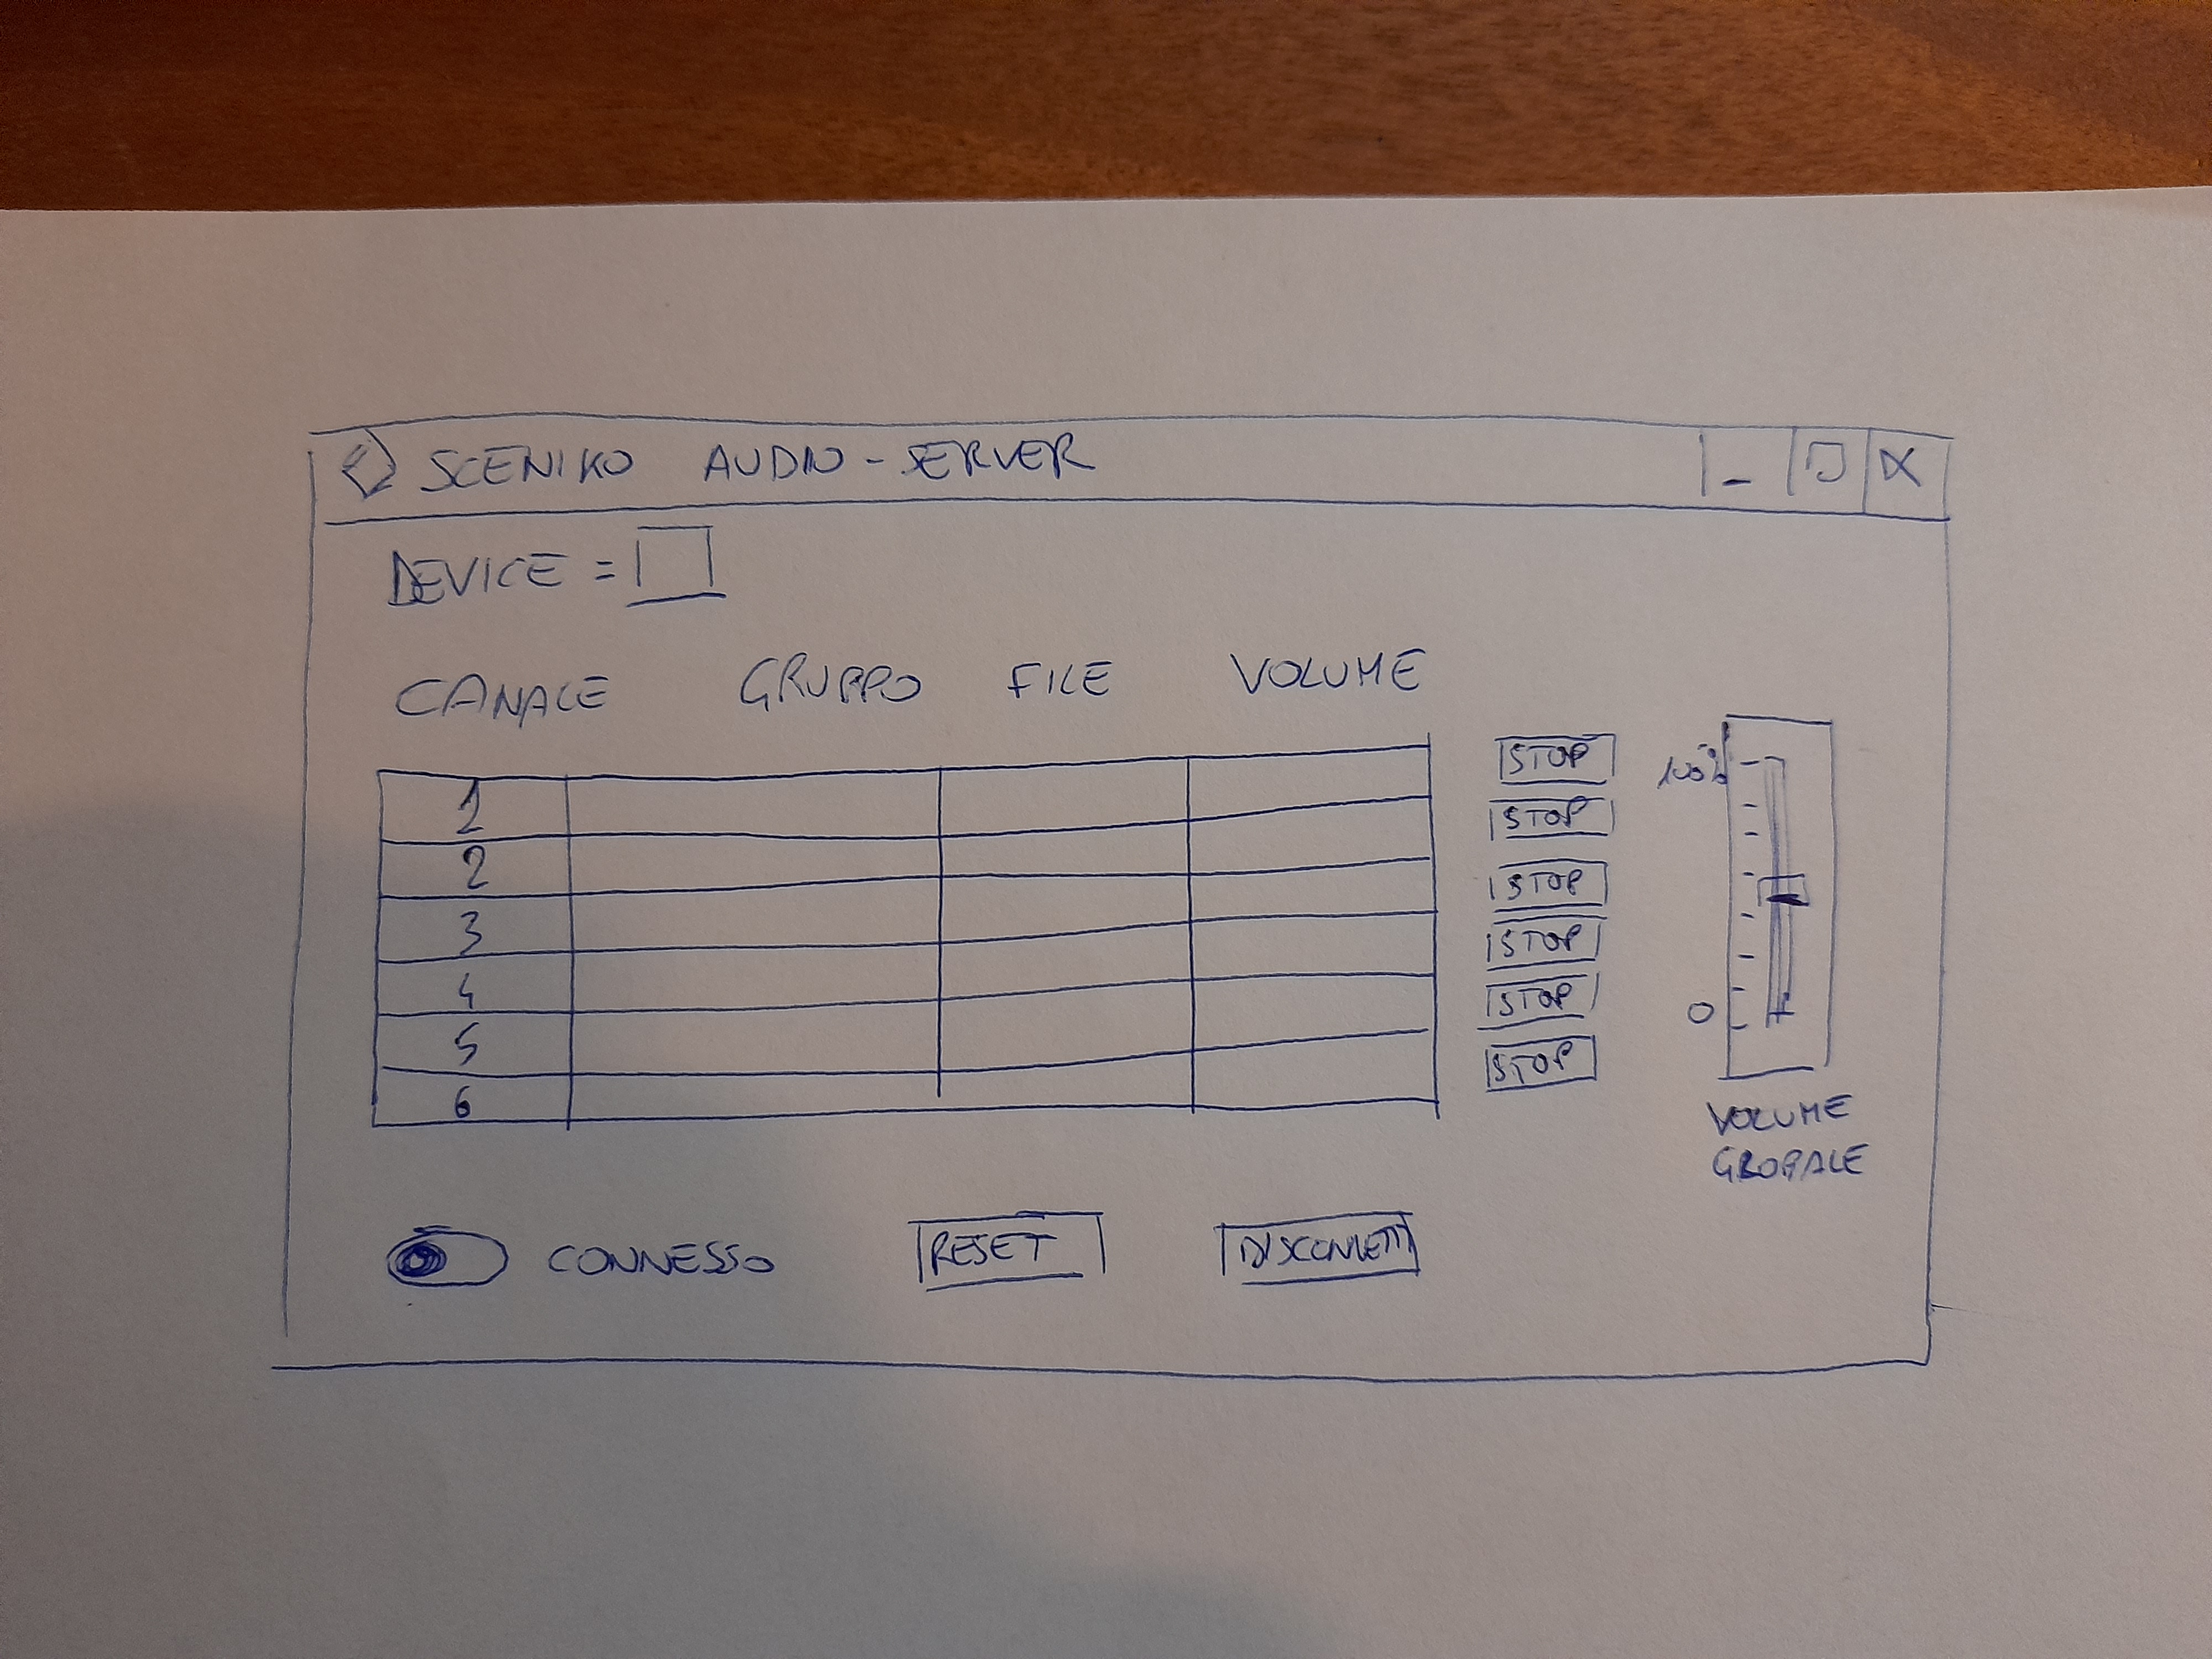 SCENIKO AUDIO-SERVER _ X
DEVICE =
CANALE GRUPPO FILE VOLUME
1 STOP
2 STOP
3 STOP
4 STOP
5 STOP
6 STOP
100%
0
VOLUME
GLOBALE
CONNESSO RESET